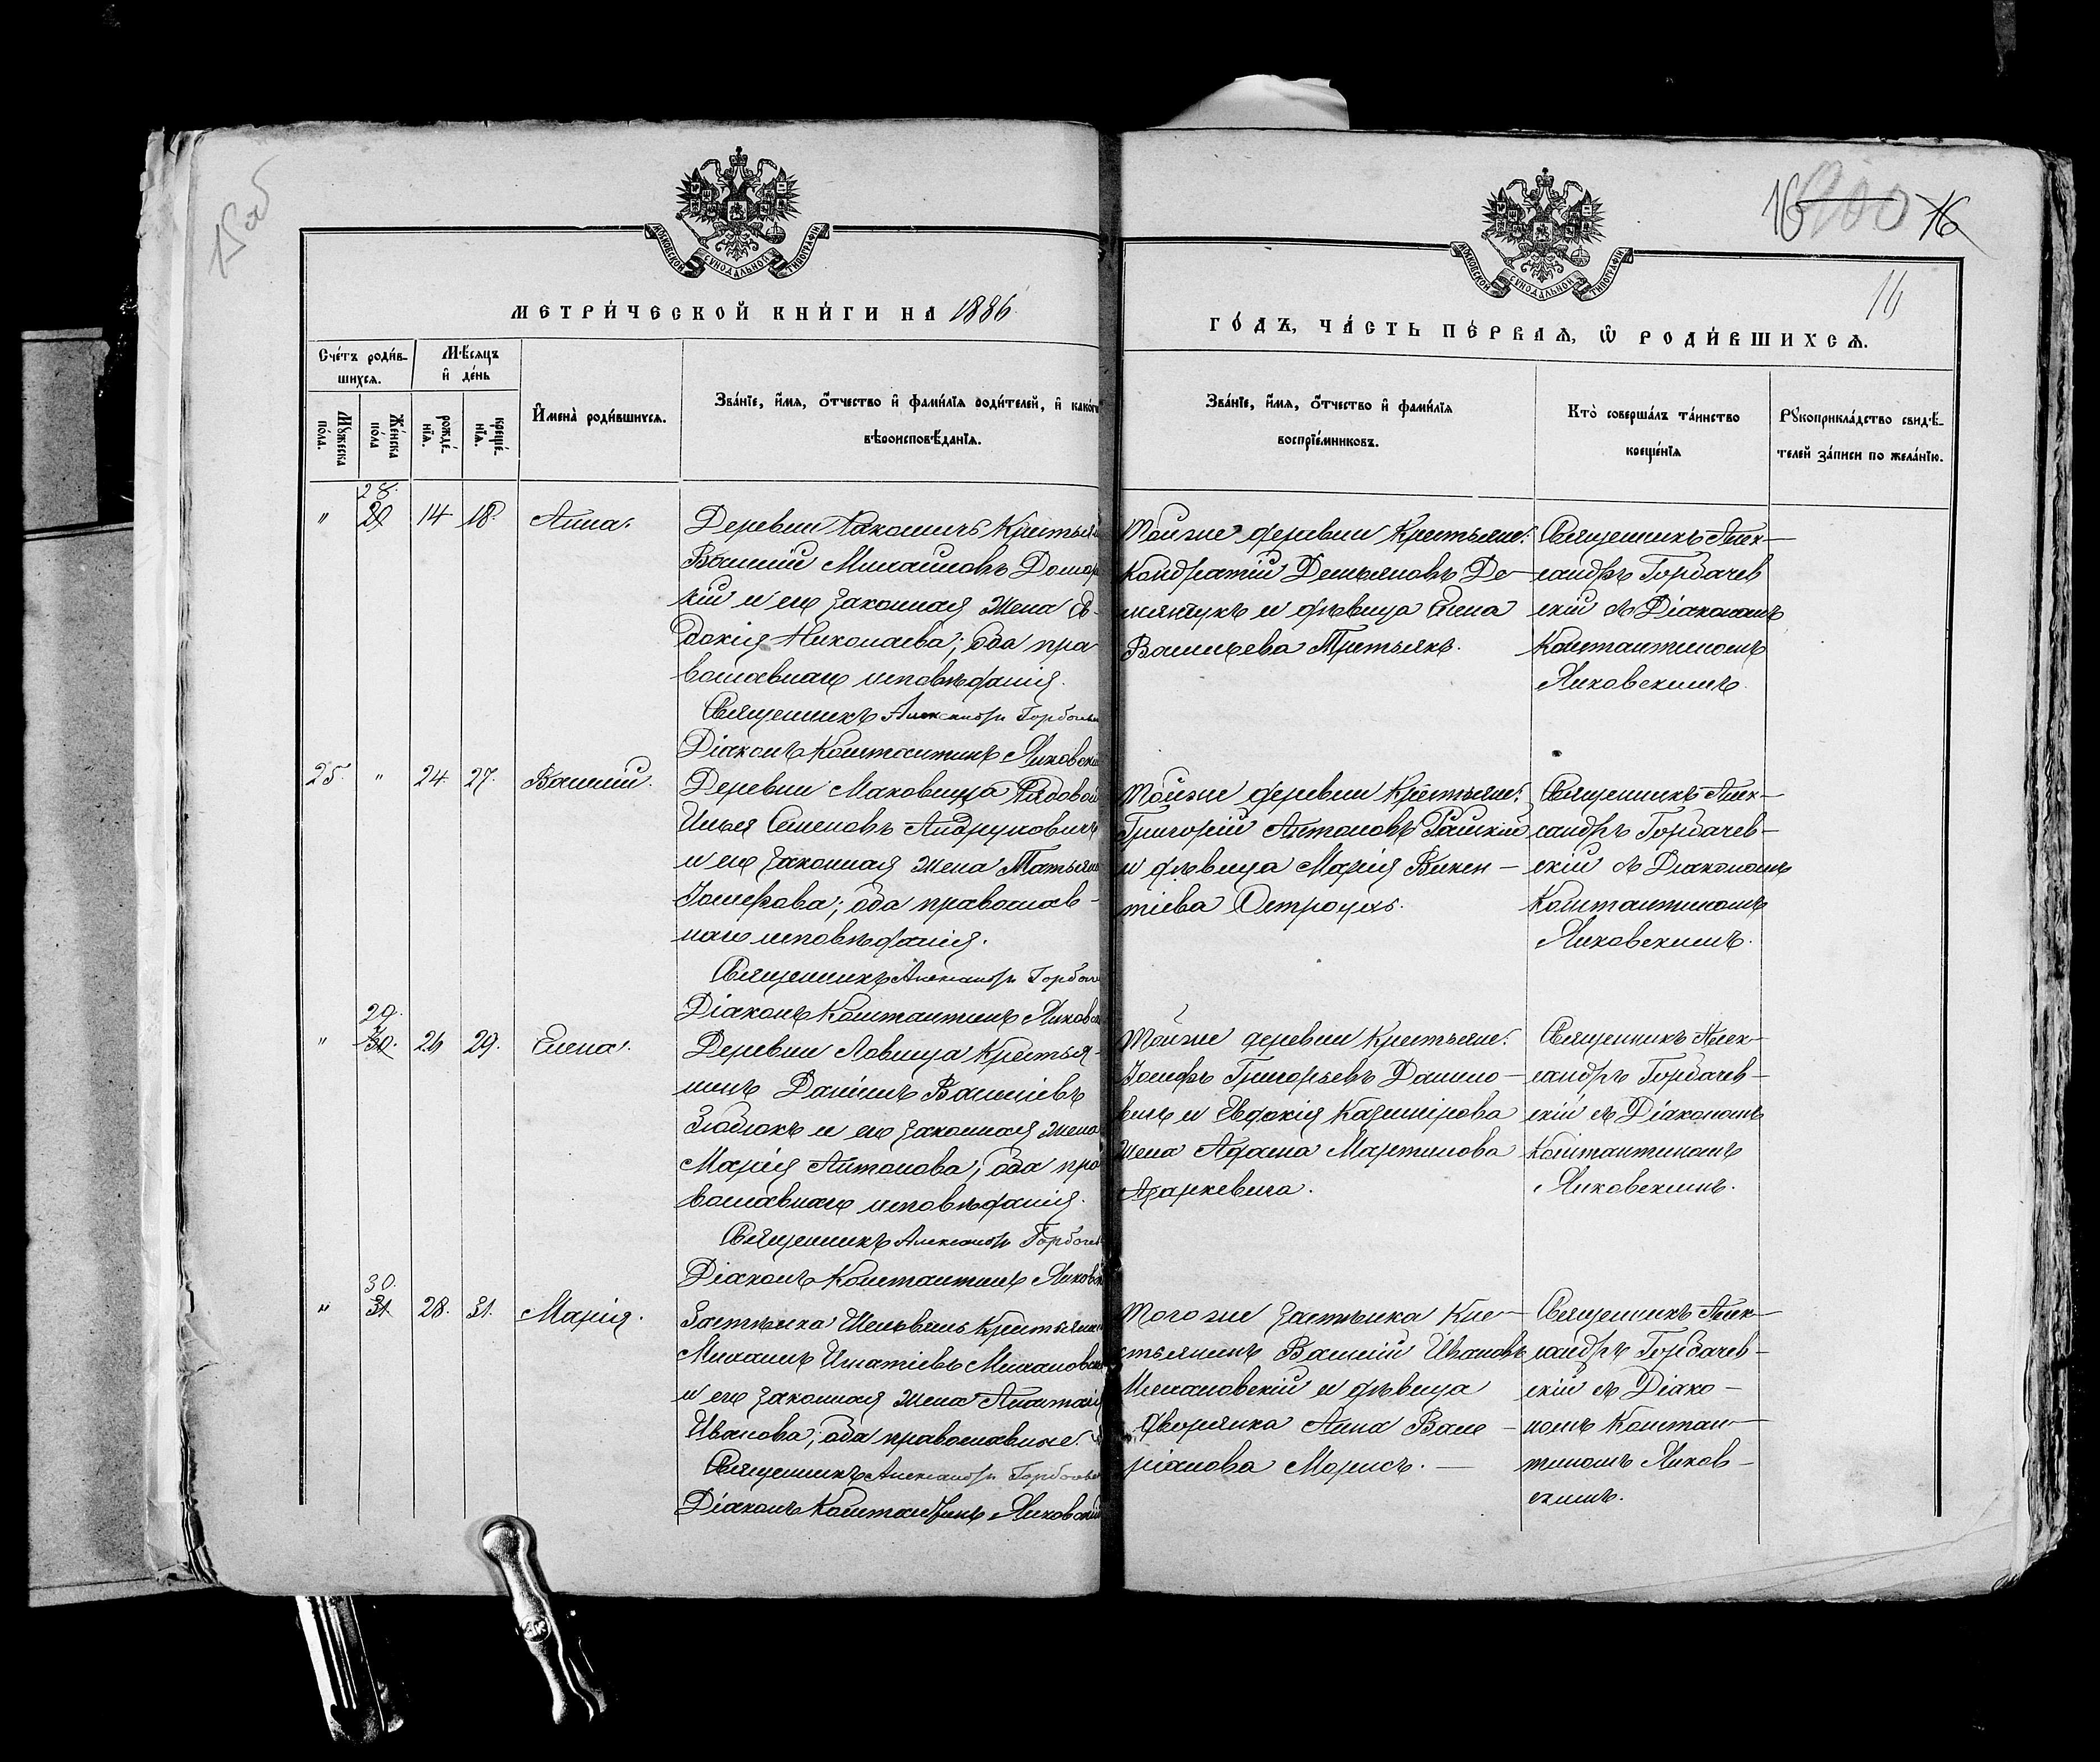 15 об
МОСКОВСКОЙ СѴНОДАЛЬНОЙ ТИПОГРАФІИ
МЕТРИ́ЧЕСКОЙ КНИ́ГИ НА 1886
Сче́тъ роди́в-
шихсѧ.
Мѣ́сѧцъ
и҆ де́нь
Мꙋ́жеска
по́ла.
Же́нска
по́ла
рожде́-
нїѧ.
креще́-
нїѧ.
И҆мена̀ роди́вшихсѧ.
Зва́нїе, и҆́мѧ, ѻ҆́тчество и҆ фами́лїѧ роди́телей, и҆ како́гѡ
вѣроисповѣ́данїѧ.
28.
" 29 14 18. Анна.
Деревни Крестьян
Василій Михаиловъ Домар
кій и его законная жена Ев-
докія Николаева; оба пра
вославнаго исповѣданія.
Священникъ Александръ Горбачев
Діаконъ Константинъ Янковскій
25. " 24. 27. Василій.
Деревни Маковища Рядовой
Илья Семеновъ Андруковичъ
и его законная жена Татьяна
Іосифова; оба православ-
наго исповѣданія.
Священникъ Александръ Горбач
Діаконъ Константинъ Янковс
29.
" 30. 26 29. Елена.
Деревни Ловища Крестья-
нинъ Даніилъ Василіевъ
Зюблокъ и его законная жена
Марія Антонова; оба пра
вославнаго исповѣданія.
Священникъ Александръ Горбачев
Діаконъ Константинъ Янковск
30.
" 31. 28. 31. Марія.
Застѣнка Крестьянин
Михаилъ Игнатіевъ
и его законная жена Анастасія
Иванова; оба православные.
Священникъ Александръ Горбачев
Діаконъ Константинъ Янковскій
16 100 16
16
МОСКОВСКОЙ СѴНОДАЛЬНОЙ ТИПОГРАФІИ
ГО́ДЪ, ЧА́СТЬ ПЕ́РВАѦ, Ѡ҆ РОДИ́ВШИХСѦ.
Зва́нїе, и҆́мѧ, ѻ҆́тчество и҆ фами́лїѧ
воспрїе́мниковъ.
Кто̀ соверша́лъ та́инство
креще́нїѧ
Рꙋкоприкла́дство свидѣ́-
телей за́писи по жела́нїю.
Той же деревни Крестьяне:
Кондратій Демьяновъ Де-
мянчукъ и дѣвица Елена
Васильева Третьякъ.
Священникъ Алек-
сандръ Горбачев
скій съ Діакономъ
Константиномъ
Янковскимъ.
Той же деревни Крестьяне:
Григорій Антоновъ
и дѣвица Марія Викен-
тіева Петроцкъ.
Священникъ Алек-
сандръ Горбачев-
скій съ Діакономъ
Константиномъ
Янковскимъ.
Той же деревни Крестьяне:
Іосифъ Григорьевъ Данило-
вичъ и Евдокія Казимірова
жена Адама Мартинова
Азаркевича.
Священникъ Алек-
сандръ Горбачев-
скій съ Діакономъ
Константиномъ
Янковскимъ.
Того же застѣнка Кре-
стьянинъ Василій Ивановъ
и дѣвица
дворянка Анна Вале-
ріанова Морисъ.
Священникъ Алек-
сандръ Горбачев-
скій съ Діако-
номъ Констан-
тиномъ Янков-
скимъ.